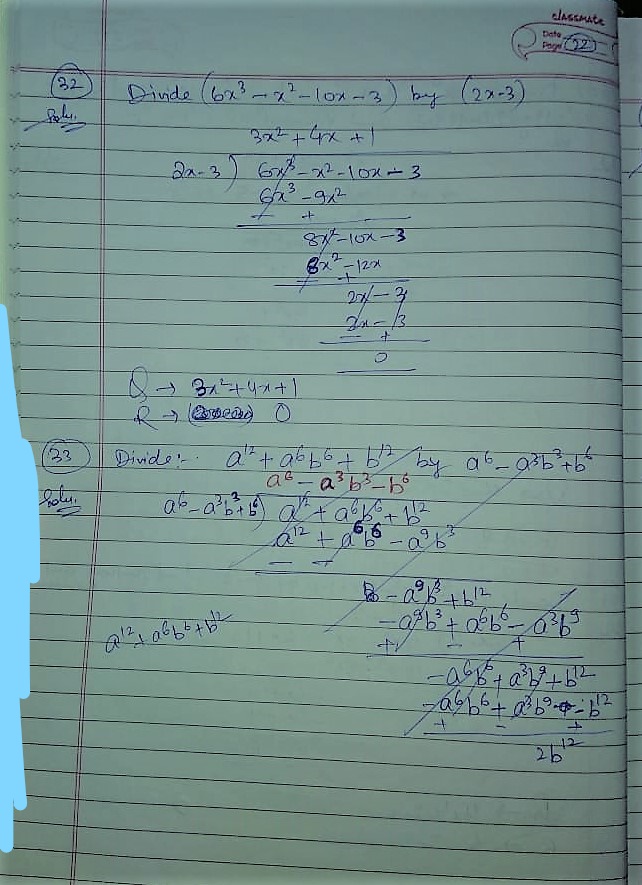 classmate
Date
Page 22
32 Divide (6x³ - x² - 10x - 3) by (2x-3)
Solu.
3x² + 4x + 1
2x-3 ) 6x³ - x² - 10x - 3
6x³ - 9x²
- +
8x² - 10x - 3
8x² - 12x
- +
2x - 3
2x - 3
- +
0
Q → 3x² + 4x + 1
R → 0
33 Divide:- a¹² + a⁶b⁶ + b¹² by a⁶ - a³b³ + b⁶
a⁶ - a³b³ - b⁶
Solu. a⁶ - a³b³ + b⁶ ) a¹² + a⁶b⁶ + b¹²
a¹² + a⁶b⁶ - a⁹b³
- -
- a⁹b³ + b¹²
- a⁹b³ + a⁶b⁶ - a³b⁹
+ - +
a¹² + a⁶b⁶ + b¹²
- a⁶b⁶ + a³b⁹ + b¹²
- a⁶b⁶ + a³b⁹ - b¹²
+ - +
2b¹²